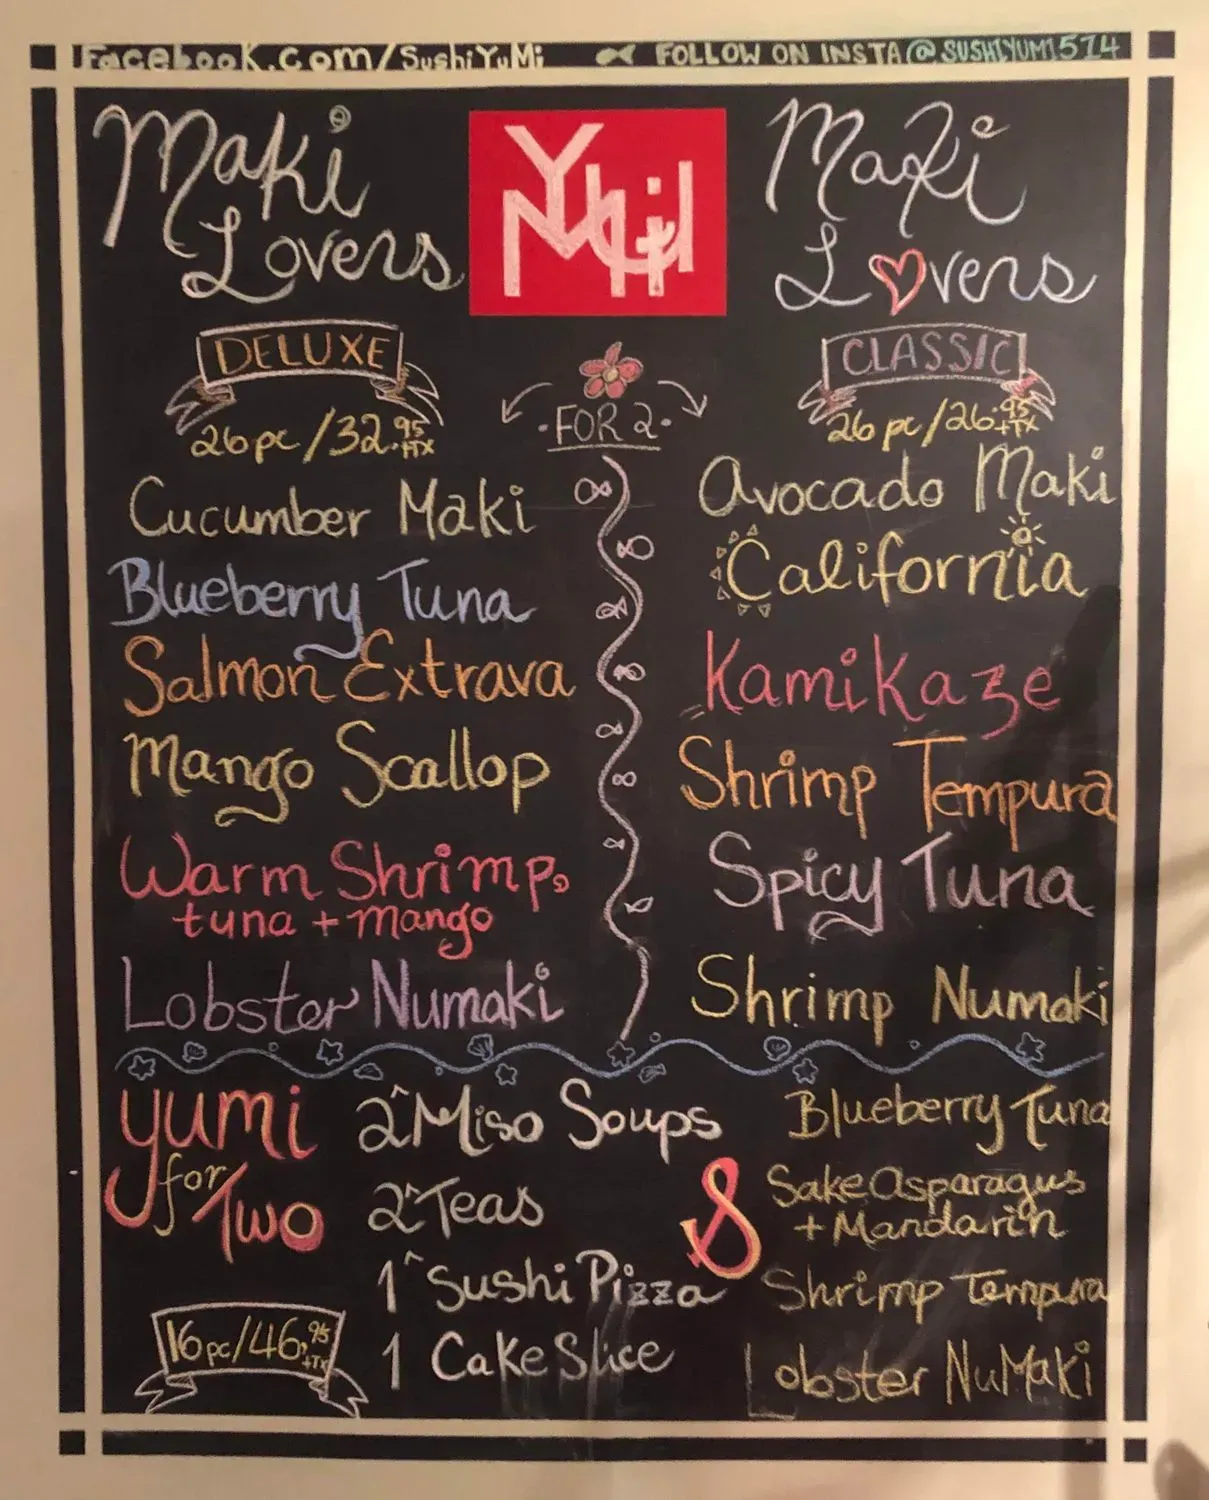 Facebook.com/SushiYuMi FOLLOW ON INSTA @SUSHIYUMI514
Maki
Lovers
DELUXE
26pc/32.95 +TX
Cucumber Maki
Blueberry Tuna
Salmon Extrava
Mango Scallop
Warm Shrimp,
tuna + mango
Lobster Numaki
YUMi
FOR 2
Maki
Lovers
CLASSIC
26pc/26.95 +TX
Avocado Maki
California
Kamikaze
Shrimp Tempura
Spicy Tuna
Shrimp Numaki
yumi
for
Two
16pc/46.95 +TX
2 Miso Soups
2 Teas
1 Sushi Pizza
1 Cake Slice
&
Blueberry Tuna
Sake Asparagus
+ Mandarin
Shrimp Tempura
Lobster NuMaki